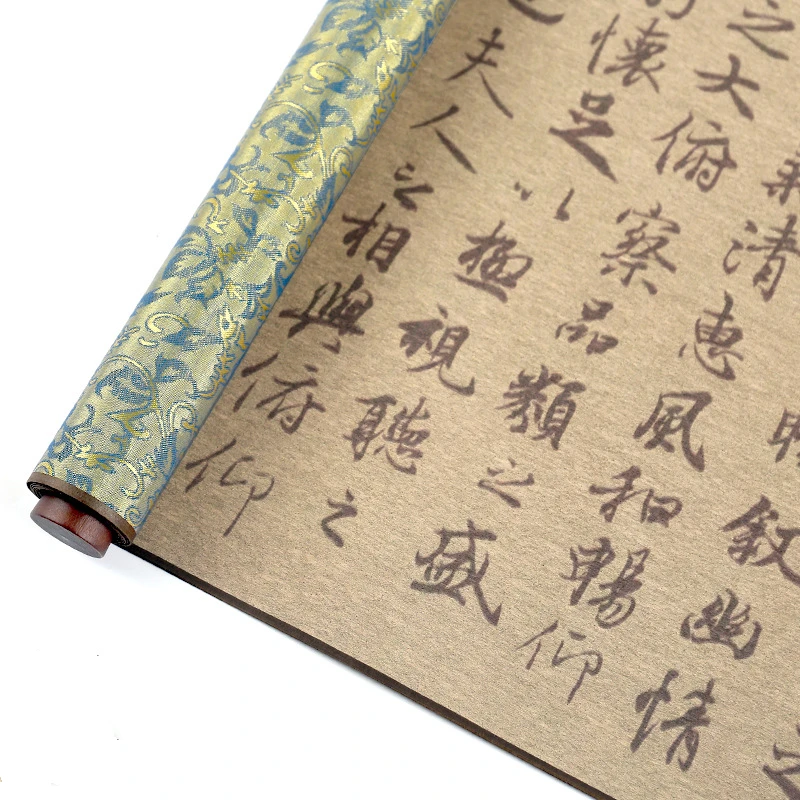 叙幽情
清惠風和暢仰
之大俯察品類之盛
懷足以極視聽之
夫人之相與俯仰